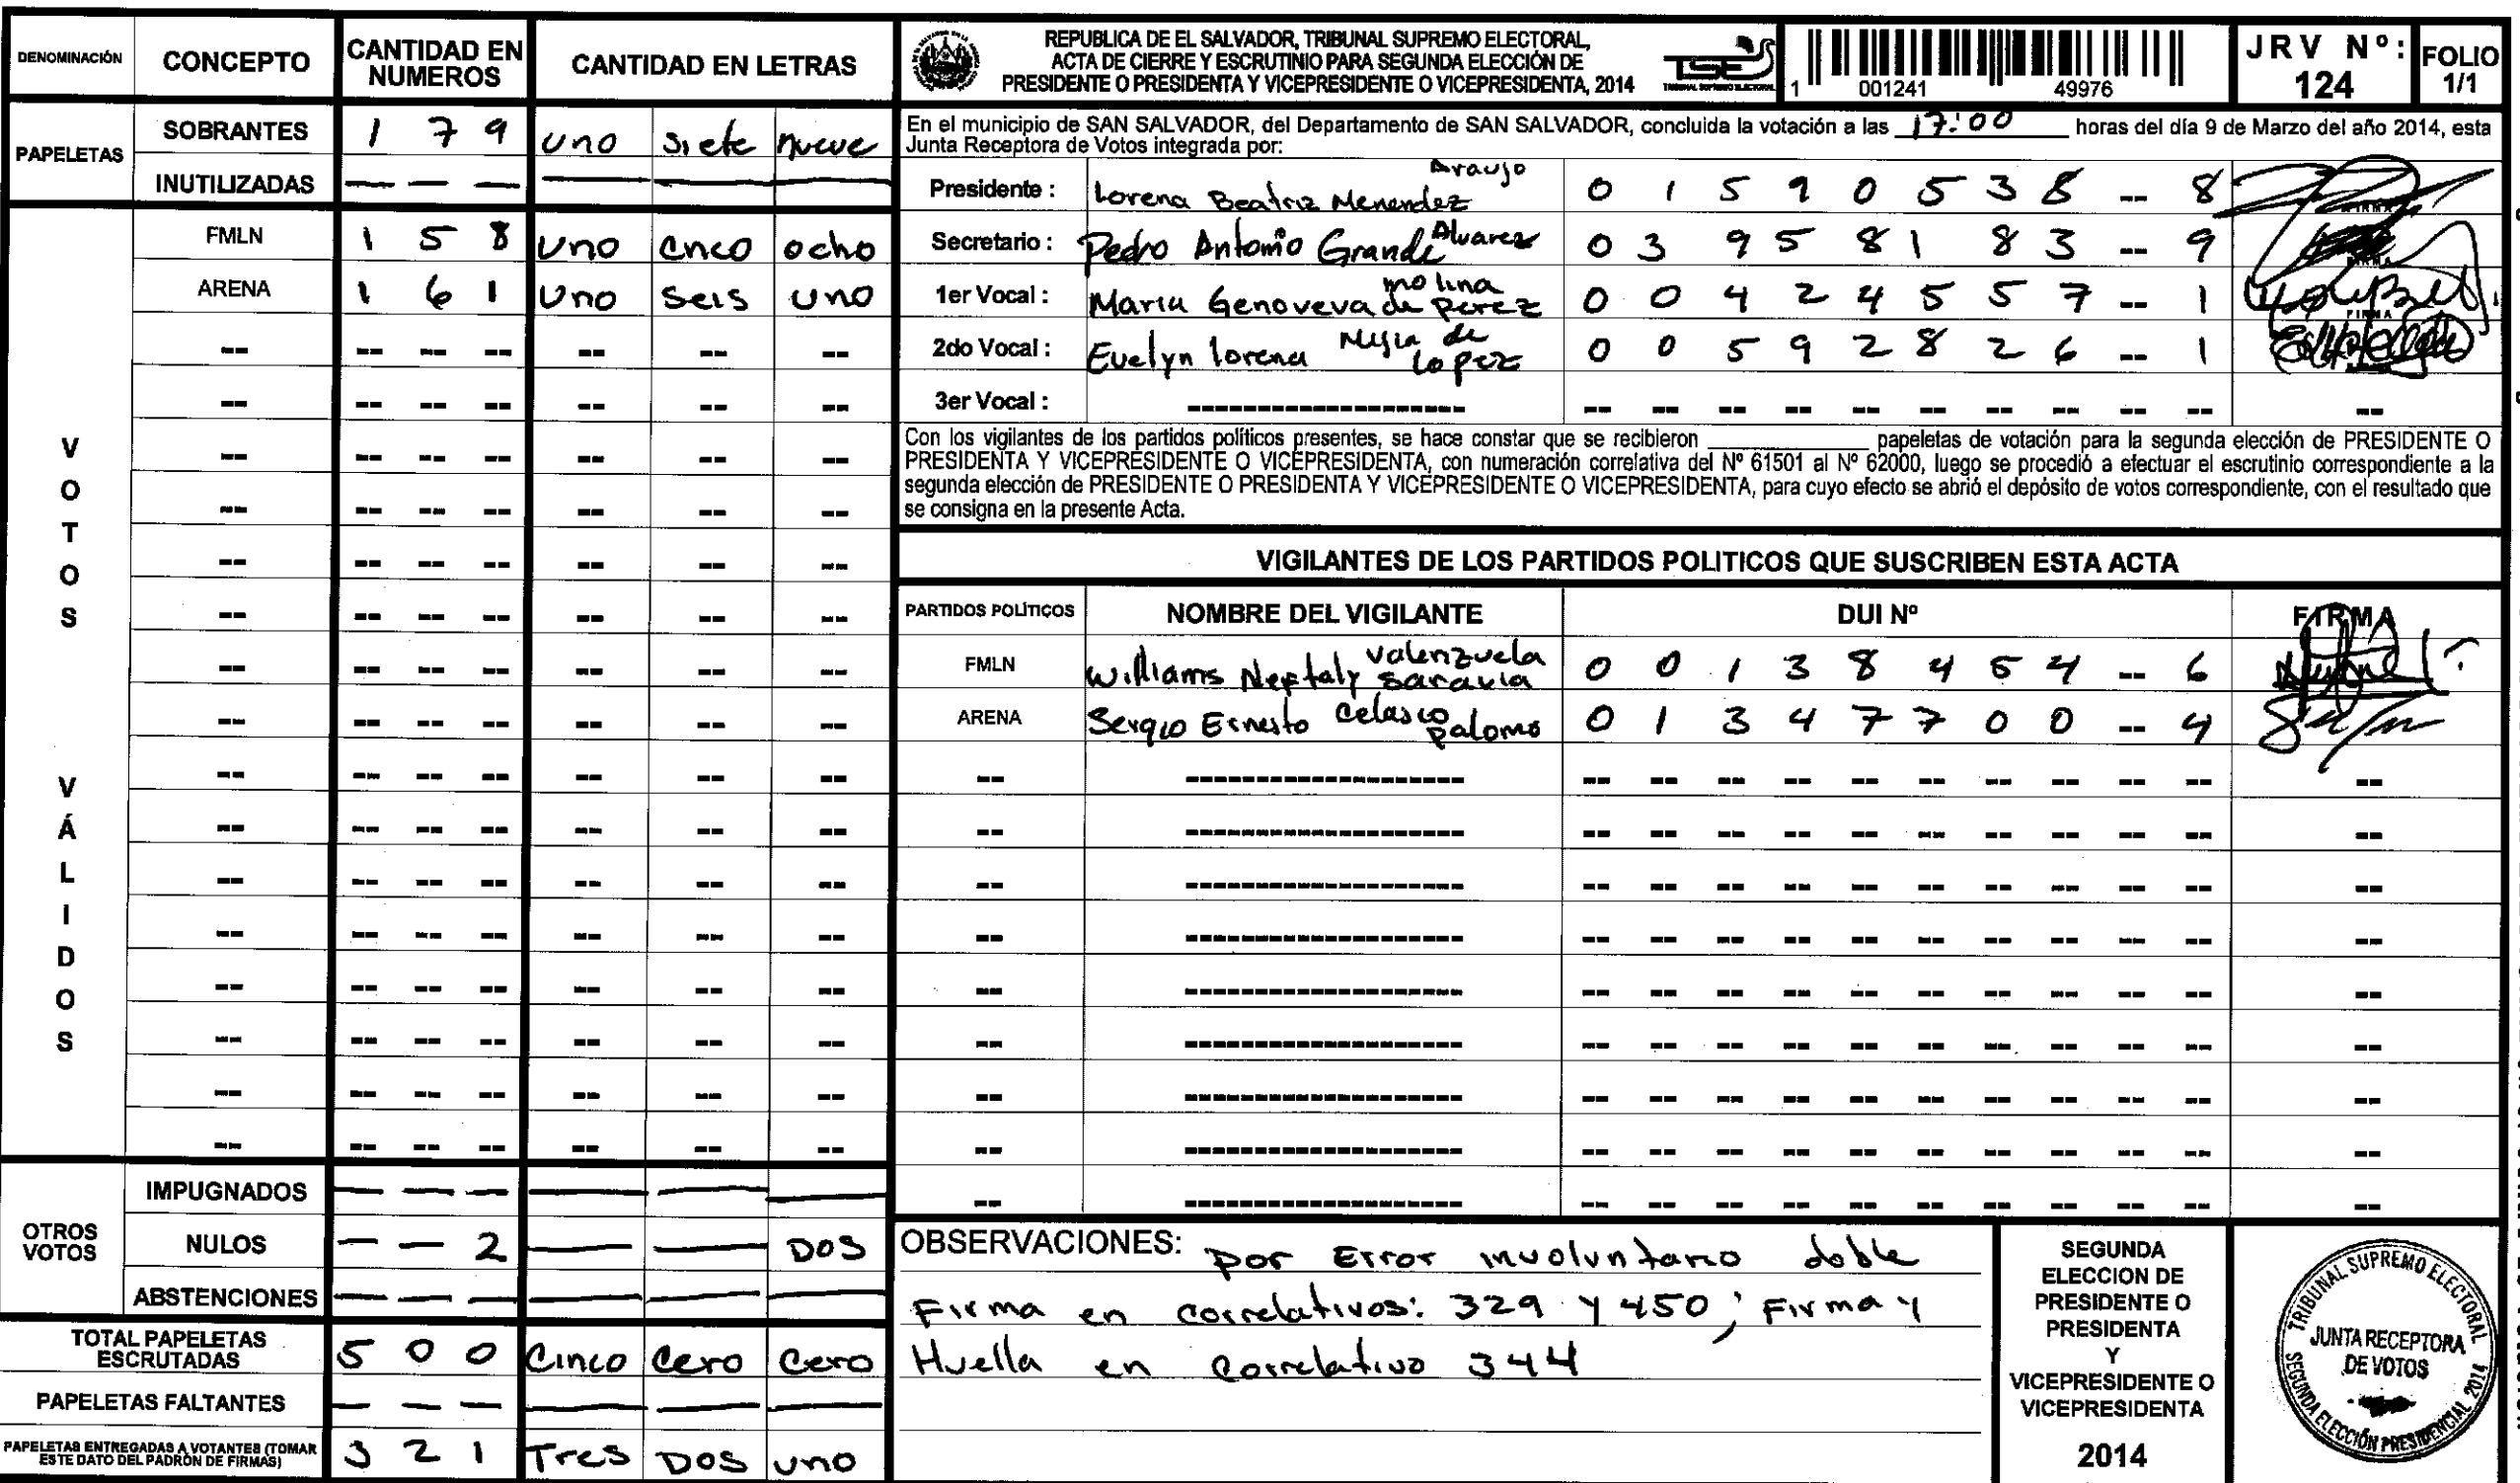 DENOMINACIÓN CONCEPTO CANTIDAD EN NUMEROS CANTIDAD EN LETRAS
PAPELETAS
SOBRANTES 1 7 9 uno siete nueve
INUTILIZADAS — — — — — —
VOTOS VÁLIDOS
FMLN 1 5 8 uno cnco ocho
ARENA 1 6 1 uno seis uno
OTROS VOTOS
IMPUGNADOS — — — — — —
NULOS — — 2 — — DOS
ABSTENCIONES — — — — — —
TOTAL PAPELETAS ESCRUTADAS 5 0 0 Cinco Cero Cero
PAPELETAS FALTANTES — — — — — —
PAPELETAS ENTREGADAS A VOTANTES (TOMAR ESTE DATO DEL PADRÓN DE FIRMAS) 3 2 1 Tres DOS uno
REPUBLICA DE EL SALVADOR, TRIBUNAL SUPREMO ELECTORAL,
ACTA DE CIERRE Y ESCRUTINIO PARA SEGUNDA ELECCIÓN DE
PRESIDENTE O PRESIDENTA Y VICEPRESIDENTE O VICEPRESIDENTA, 2014
TSE
TRIBUNAL SUPREMO ELECTORAL
1 001241 49976
JRV Nº: 124
FOLIO 1/1
En el municipio de SAN SALVADOR, del Departamento de SAN SALVADOR, concluida la votación a las 17:00 horas del día 9 de Marzo del año 2014, esta
Junta Receptora de Votos integrada por:
Presidente : Lorena Beatriz Menendez Araujo 0 1 5 9 0 5 3 8 -- 8
Secretario : Pedro Antonio Grande Alvarez 0 3 9 5 8 1 8 3 -- 9
1er Vocal : Maria Genoveva molina de perez 0 0 4 2 4 5 5 7 -- 1
2do Vocal : Evelyn lorena Mejia de lopez 0 0 5 9 2 8 2 6 -- 1
3er Vocal : --------------------
Con los vigilantes de los partidos políticos presentes, se hace constar que se recibieron ________ papeletas de votación para la segunda elección de PRESIDENTE O
PRESIDENTA Y VICEPRESIDENTE O VICEPRESIDENTA, con numeración correlativa del Nº 61501 al Nº 62000, luego se procedió a efectuar el escrutinio correspondiente a la
segunda elección de PRESIDENTE O PRESIDENTA Y VICEPRESIDENTE O VICEPRESIDENTA, para cuyo efecto se abrió el depósito de votos correspondiente, con el resultado que
se consigna en la presente Acta.
VIGILANTES DE LOS PARTIDOS POLITICOS QUE SUSCRIBEN ESTA ACTA
PARTIDOS POLÍTICOS NOMBRE DEL VIGILANTE DUI Nº FIRMA
FMLN Williams Neftaly Valenzuela Saravia 0 0 1 3 8 4 5 4 -- 6
ARENA Sergio Ernesto Celasco Palomo 0 1 3 4 7 7 0 0 -- 4
OBSERVACIONES: por Error involuntario doble
Firma en correlativos: 329 y 450; Firma y
Huella en correlativo 344
SEGUNDA
ELECCION DE
PRESIDENTE O
PRESIDENTA
Y
VICEPRESIDENTE O
VICEPRESIDENTA
2014
TRIBUNAL SUPREMO ELECTORAL
JUNTA RECEPTORA
DE VOTOS
SEGUNDA ELECCIÓN PRESIDENCIAL 2014